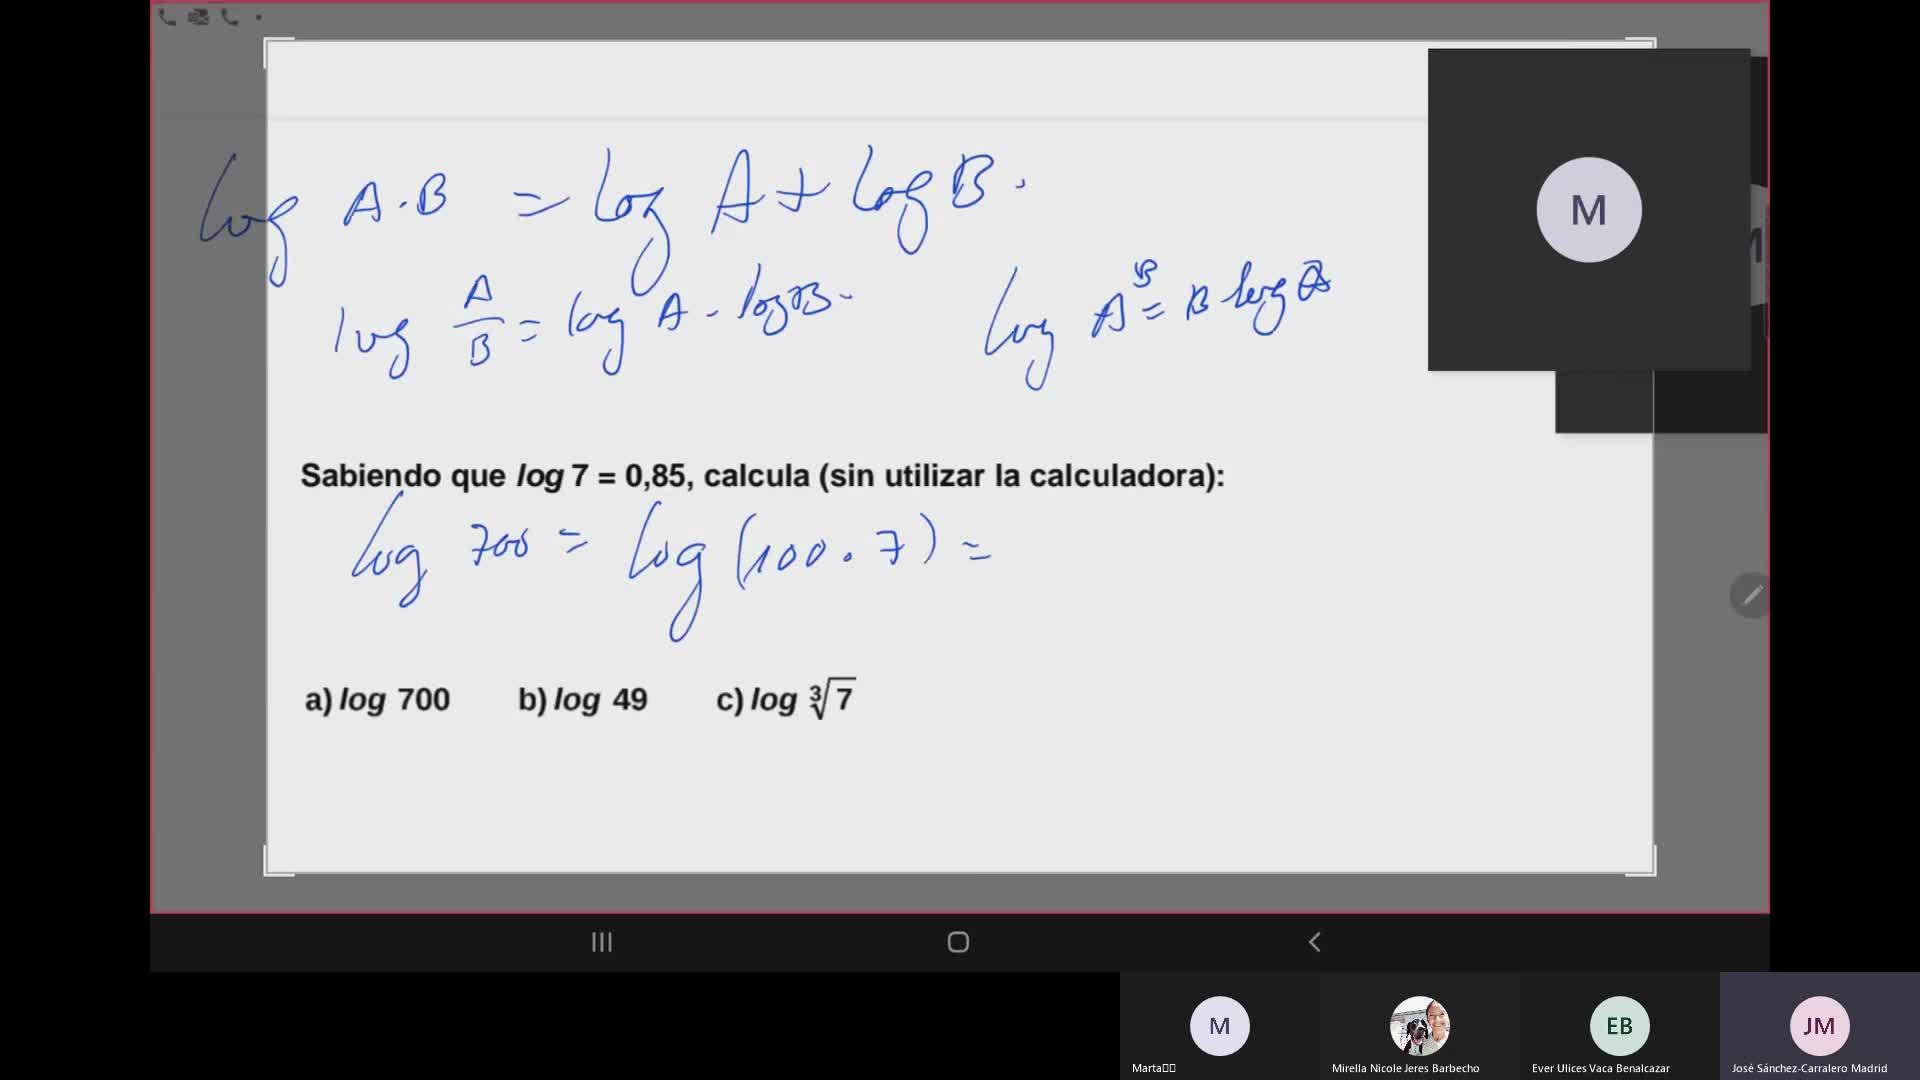 log A·B = log A + log B.
log A/B = log A - log B.
log A^B = B log A
Sabiendo que log 7 = 0,85, calcula (sin utilizar la calculadora):
log 700 = log (100·7) =
a) log 700 b) log 49 c) log ∛7
M
M
M
EB
JM
Marta
Mirella Nicole Jeres Barbecho
Ever Ulices Vaca Benalcazar
José Sánchez-Carralero Madrid